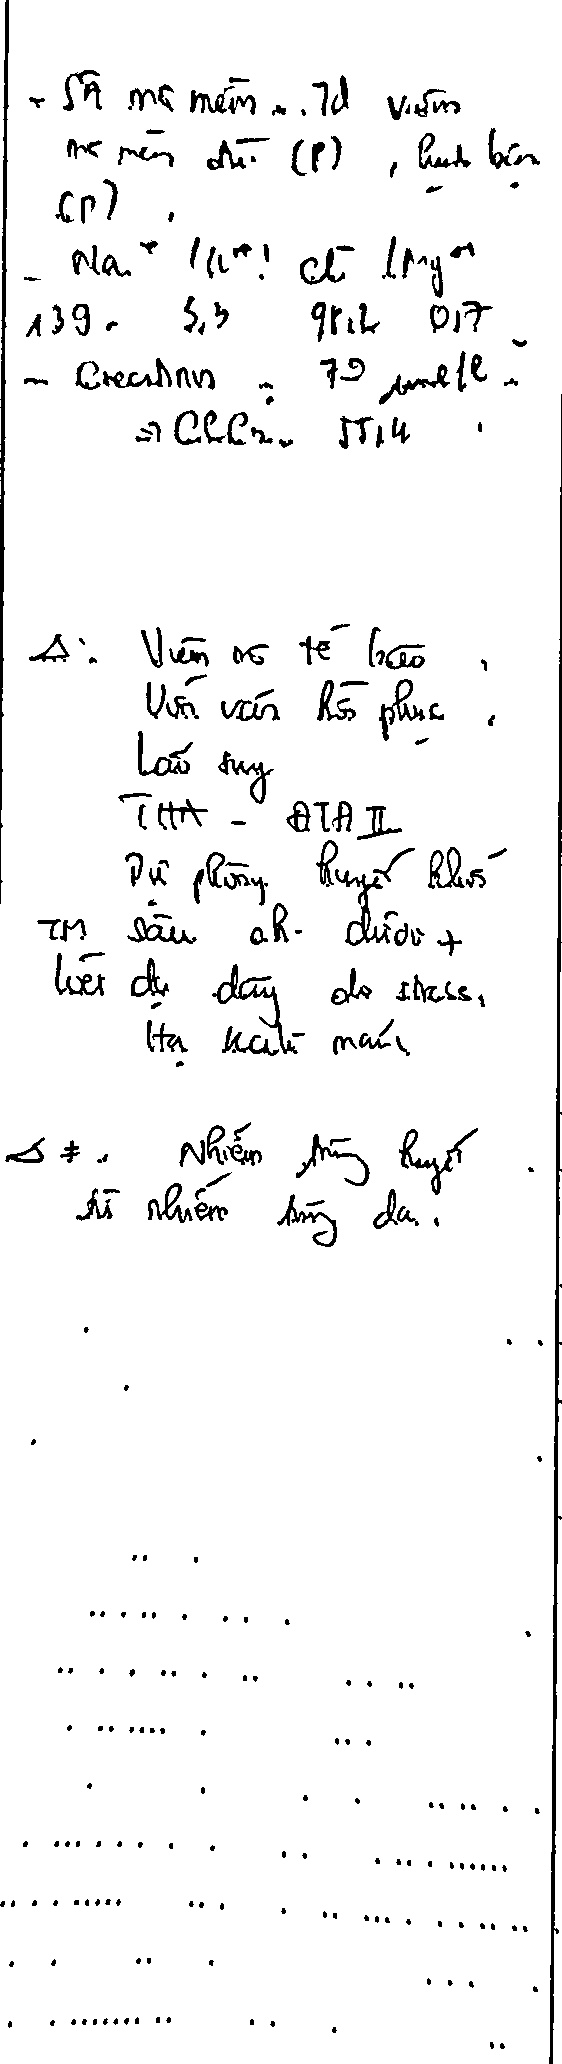 - SÂ mô mềm: Td viêm
mô mềm đùi (P), hạch bẹn
(P).
- Na+ / K+ / Cl- / Mg++
139 - 3,3 98,2 0,7
- Creatinin : 79 µmol/l
=> ClCr 55,4
Δ: Viêm mô tế bào
Vết vấn hồi phục
Lão suy
THA - ĐTĐ II
Dự phòng huyết khối
TM sâu ch. dưới +
loét dạ dày do stress.
Hạ kali máu.
Δ ≠: Nhiễm trùng huyết
từ nhiễm trùng da.